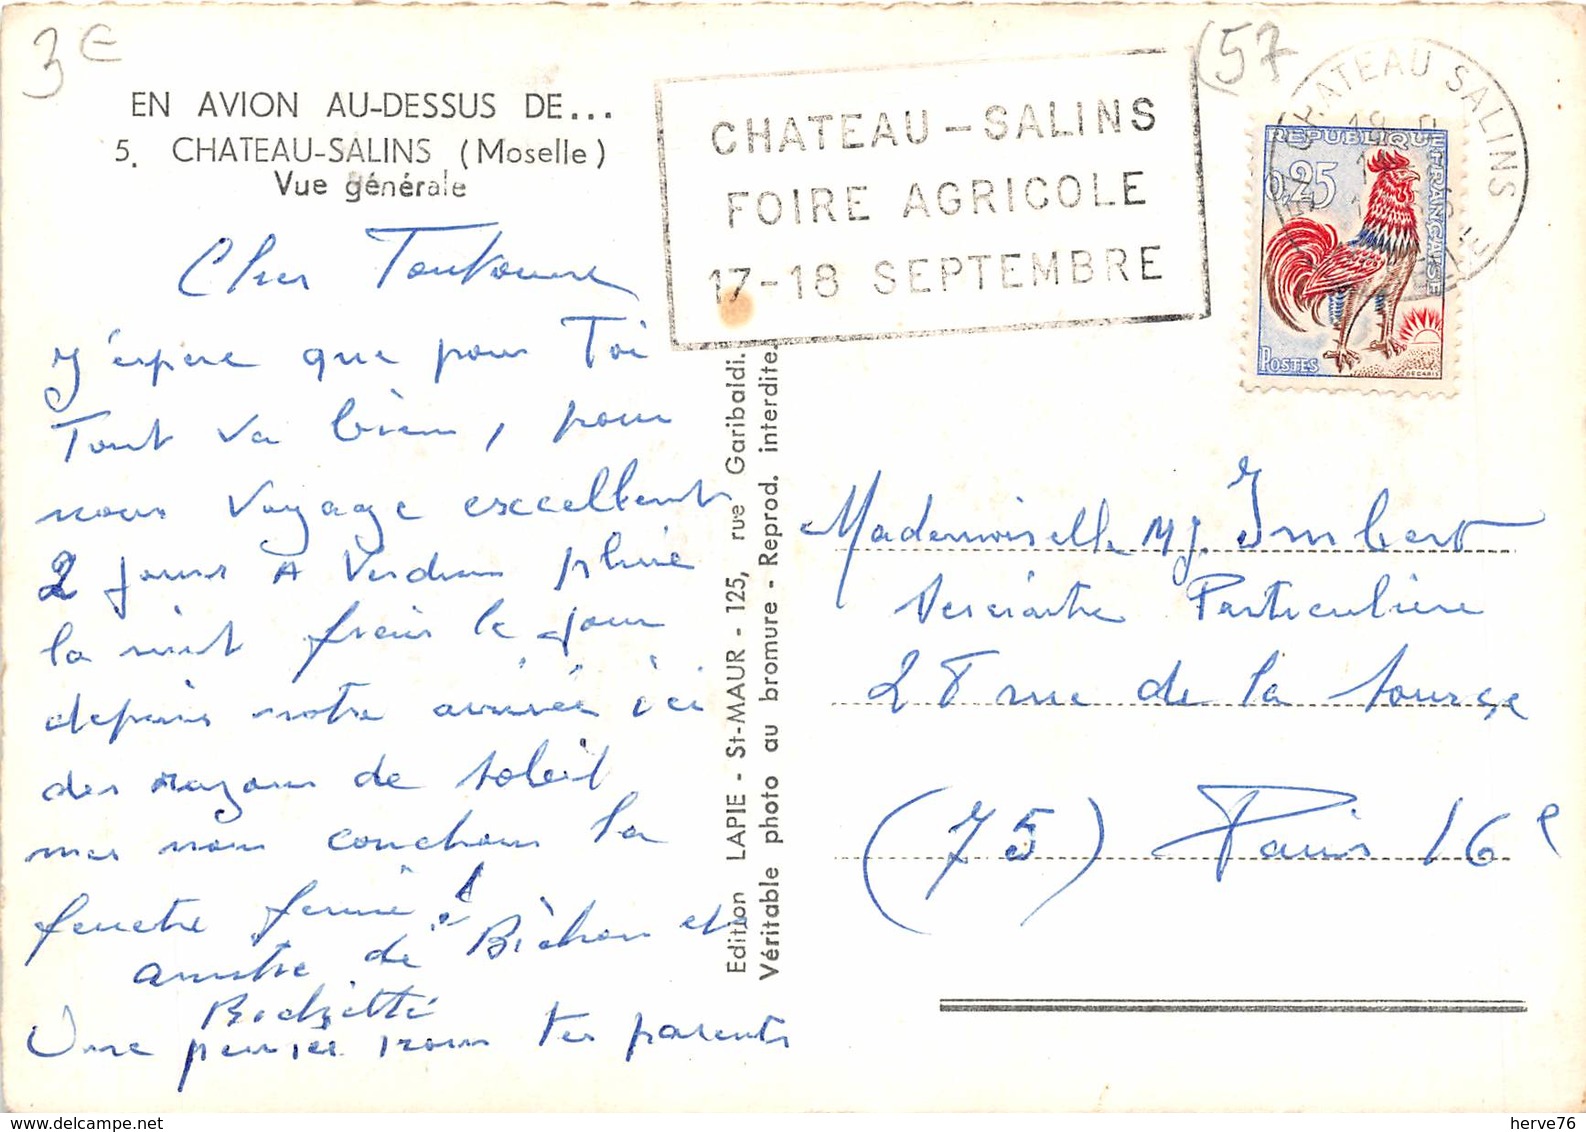 3€
(57
EN AVION AU-DESSUS DE...
5. CHATEAU-SALINS (Moselle)
Vue générale
CHATEAU-SALINS
FOIRE AGRICOLE
17-18 SEPTEMBRE
CHATEAU SALINS
REPUBLIQUE FRANÇAISE
0,25
POSTES
DECARIS
Cher
J'espère que pour Toi
Tout va bien, pour
nous Voyage excellent
2 jours A Verdun pluie
la nuit frais le jour
depuis notre arrivée ici
des rayons de soleil
mes nous couchons la
fenetre fermé !
amitié de Bichon et
Une pensée pour tes parents
Edition LAPIE - St-MAUR - 125, rue Garibaldi.
Véritable photo au bromure - Reprod. interdite.
Mademoiselle M J. Imbert
Secrétaire Particulière
28 rue de la source
(75) Paris 16e
delcampe.net
herve76